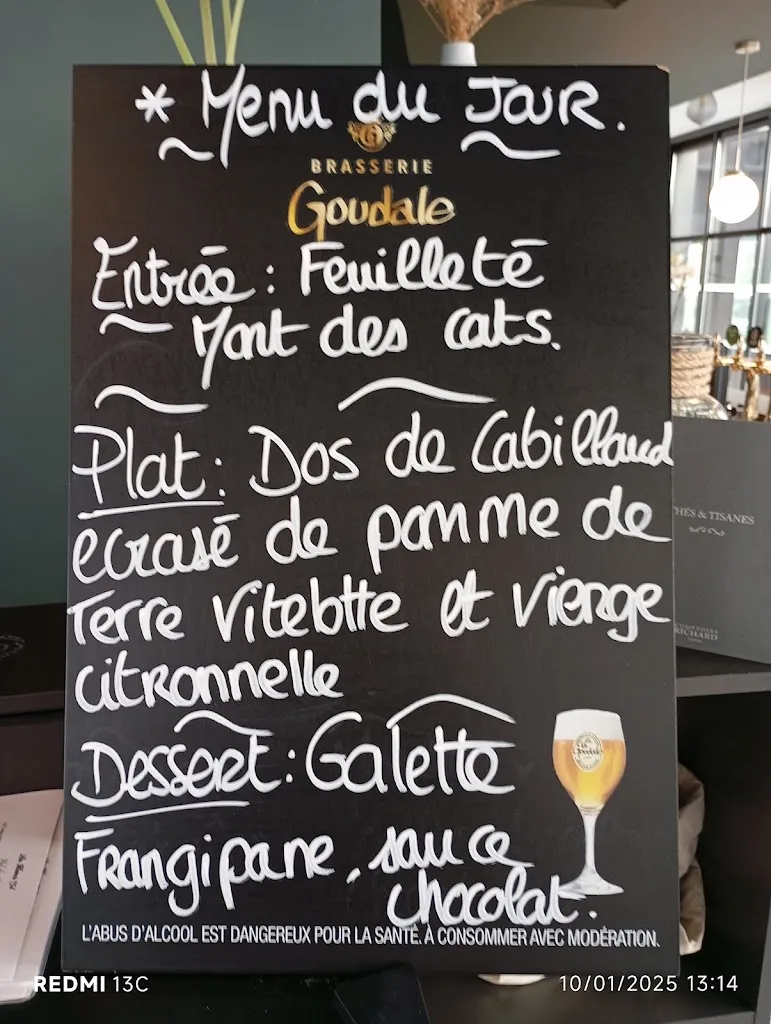 * Menu du Jour.
BRASSERIE
Goudale
Entrée : Feuilleté
Mont des cats.
Plat : Dos de Cabillaud
ecrasé de pomme de
Terre Vitelotte et vierge
citronnelle
Dessert : Galette
Frangipane, sauce
chocolat.
Goudale
L'ABUS D'ALCOOL EST DANGEREUX POUR LA SANTÉ. À CONSOMMER AVEC MODÉRATION.
THÉS & TISANES
COMPTOIRS
RICHARD
REDMI 13C
10/01/2025 13:14